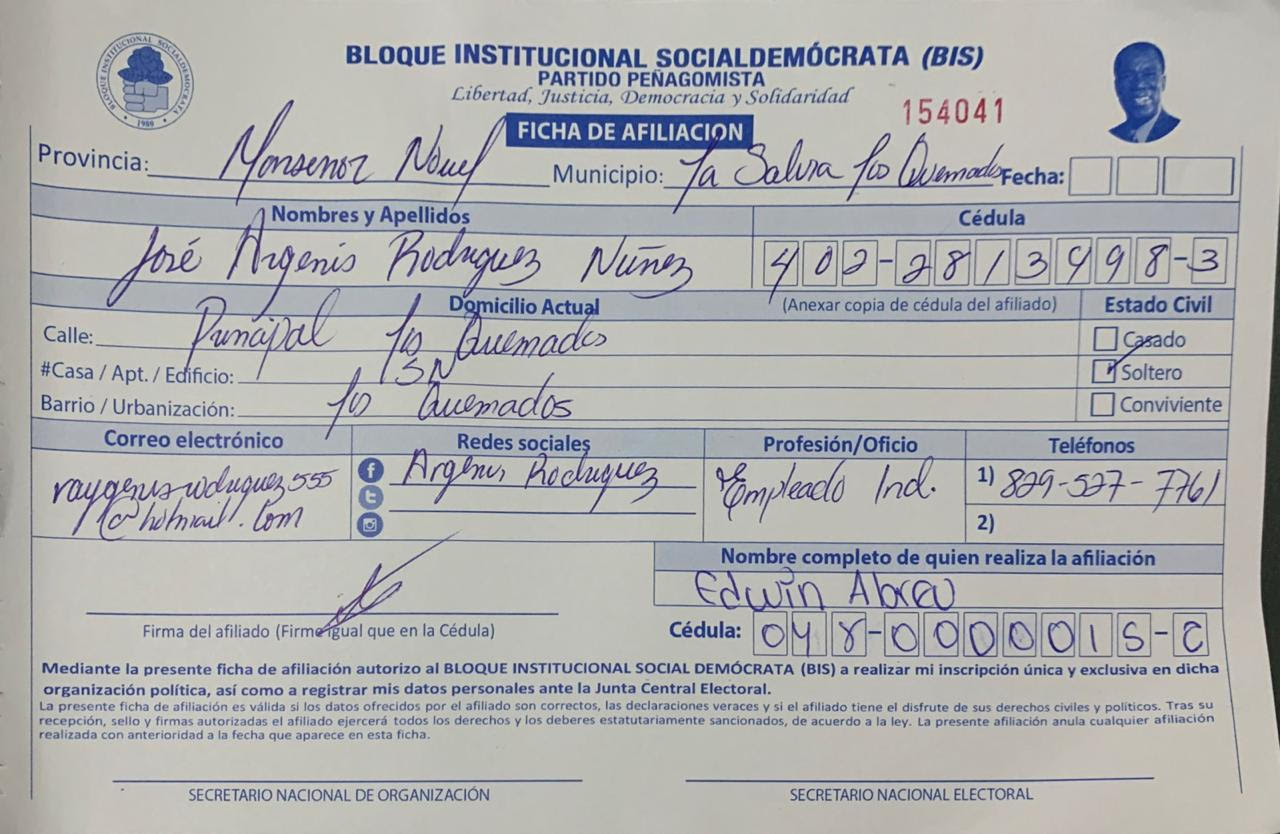 BLOQUE INSTITUCIONAL SOCIALDEMÓCRATA (BIS)
PARTIDO PEÑAGOMISTA
Libertad, Justicia, Democracia y Solidaridad
BLOQUE INSTITUCIONAL SOCIALDEMOCRATA
1989
154041
FICHA DE AFILIACION
Provincia: Monsenor Nouel Municipio: La Salvia Los Quemados Fecha:
Nombres y Apellidos Cédula
José Argenis Rodriguez Nuñez 402-2813498-3
Domicilio Actual (Anexar copia de cédula del afiliado) Estado Civil
Calle: Principal Los Quemados Casado
#Casa / Apt. / Edificio: SN Soltero
Barrio / Urbanización: Los Quemados Conviviente
Correo electrónico Redes sociales Profesión/Oficio Teléfonos
raygenisrodriguez555 Argenis Rodriguez Empleado Ind. 1) 829-527-7761
@hotmail.com 2)
Nombre completo de quien realiza la afiliación
Edwin Abreu
Firma del afiliado (Firme igual que en la Cédula) Cédula: 048-000001S-C
Mediante la presente ficha de afiliación autorizo al BLOQUE INSTITUCIONAL SOCIAL DEMÓCRATA (BIS) a realizar mi inscripción única y exclusiva en dicha
organización política, así como a registrar mis datos personales ante la Junta Central Electoral.
La presente ficha de afiliación es válida si los datos ofrecidos por el afiliado son correctos, las declaraciones veraces y si el afiliado tiene el disfrute de sus derechos civiles y políticos. Tras su
recepción, sello y firmas autorizadas el afiliado ejercerá todos los derechos y los deberes estatutariamente sancionados, de acuerdo a la ley. La presente afiliación anula cualquier afiliación
realizada con anterioridad a la fecha que aparece en esta ficha.
SECRETARIO NACIONAL DE ORGANIZACIÓN SECRETARIO NACIONAL ELECTORAL